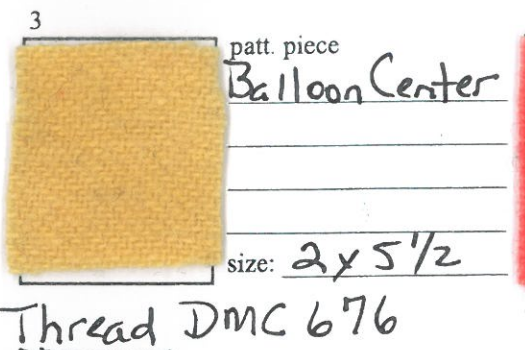 3
patt. piece
Balloon Center
size: 2 x 5 1/2
Thread DMC 676